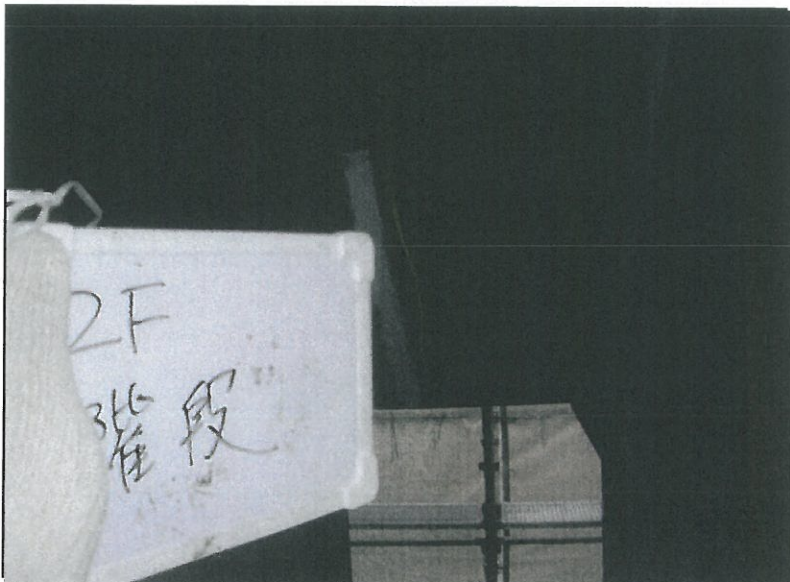 2F
階段